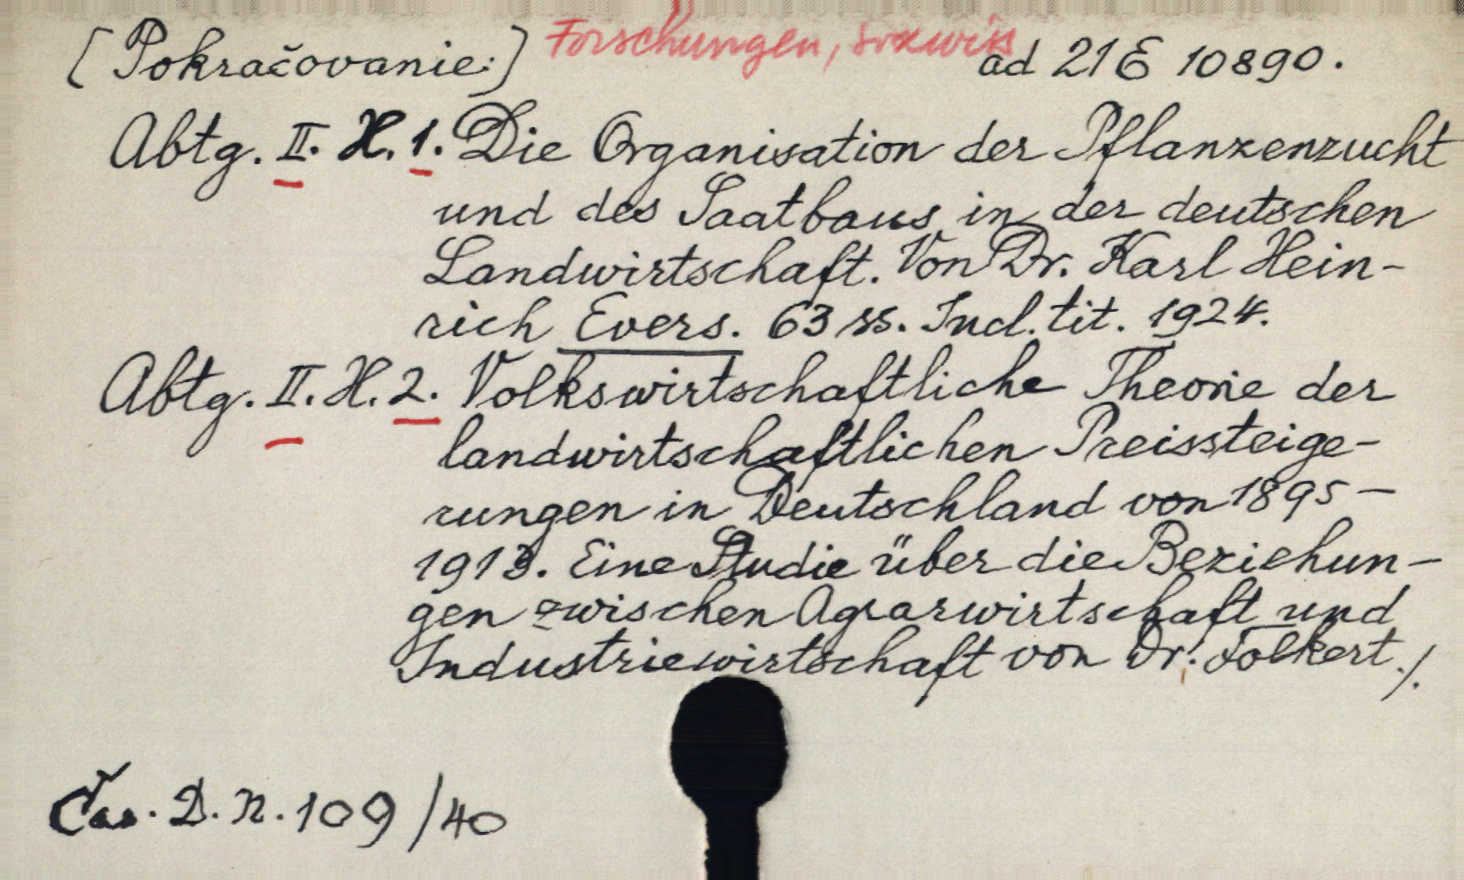 [Pokračovanie:] Forschungen, sozwiss ad 21 E 10890.
Abtg. II. H. 1. Die Organisation der Pflanzenzucht
und des Saatbaus in der deutschen
Landwirtschaft. Von Dr. Karl Hein-
rich Evers. 63 ss. Incl. tit. 1924.
Abtg. II. H. 2. Volkswirtschaftliche Theorie der
landwirtschaftlichen Preissteige-
rungen in Deutschland von 1895-
1913. Eine Studie über die Beziehun-
gen zwischen Agrarwirtschaft und
Industriewirtschaft von Dr. Folkert ./.
Čas. D. n. 109/40